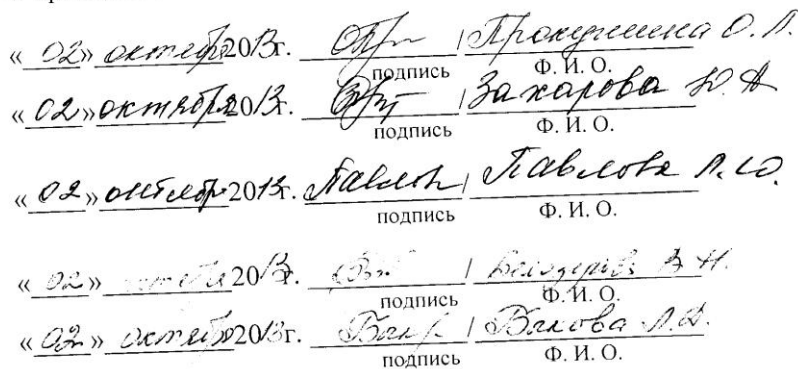 « 02 » октября 2013г. / Прокушина О. Л.
подпись Ф. И. О.
« 02 » октября 2013г. / Захарова Ю. А
подпись Ф. И. О.
« 02 » октября 2013г. Павлов / Павлова Л. Ю.
подпись Ф. И. О.
« 02 » октября 2013г. / В. Н.
подпись Ф. И. О.
« 02 » октября 2013г. / Быкова Л. Д.
подпись Ф. И. О.